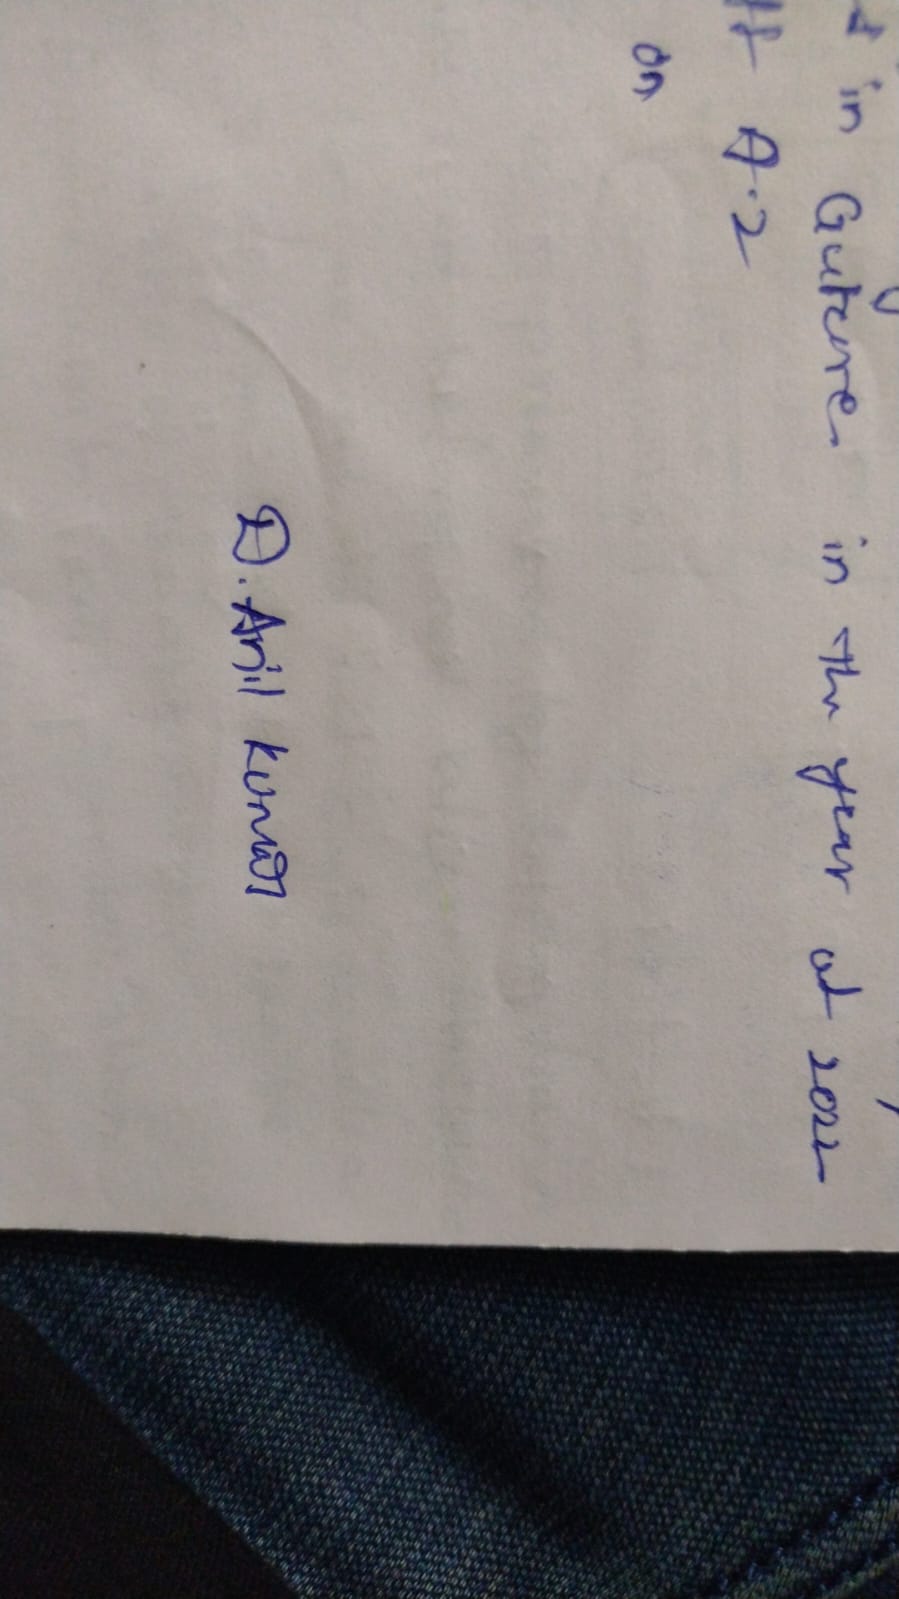 in Guterre in the year at 2022
A.2
on
D. Anil Kumar